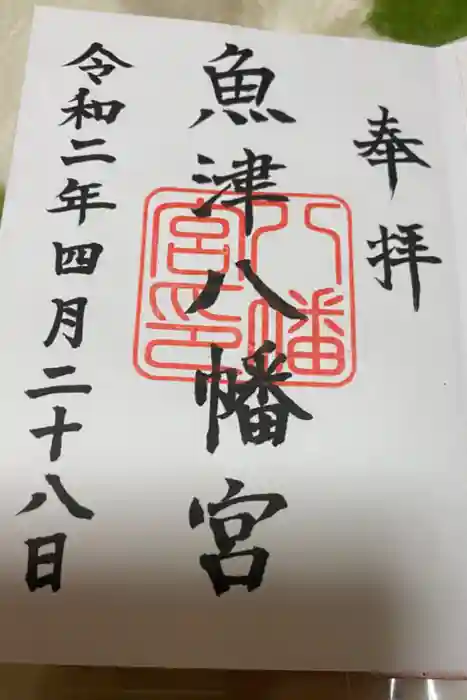 奉拝
魚津八幡宮
八幡
宮印
令和二年四月二十八日